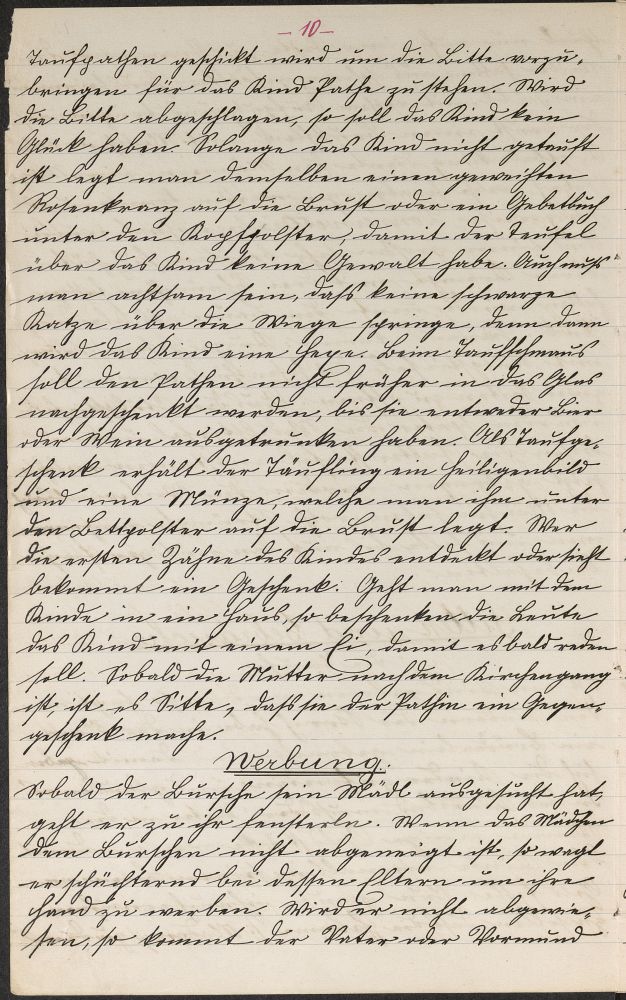 - 10 -
Taufpathen geschickt wird um die Bitte vorzu-
bringen für das Kind Pathe zu stehen. Wird
die Bitte abgeschlagen, so soll das Kind kein
Glück haben. Solange das Kind nicht getauft
ist legt man demselben einen geweihten
Rosenkranz auf die Brust oder ein Gebetbuch
unter den Kopfpolster, damit der Teufel
über das Kind keine Gewalt habe. Auch muß
man achtsam sein, daß keine schwarze
Katze über die Wiege springe, denn dann
wird das Kind eine Hexe. Beim Taufschmaus
soll den Pathen nicht früher in das Glas
nachgeschenkt werden, bis sie entweder Bier
oder Wein ausgetrunken haben. Als Taufge-
schenk erhält der Täufling ein Heiligenbild
und eine Münze, welche man ihm unter
den Bettpolster auf die Brust legt. Wer
die ersten Zähne des Kindes entdeckt oder sieht
bekommt ein Geschenk. Geht man mit dem
Kinde in ein Haus, so beschenken die Leute
das Kind mit einem Ei, damit es bald reden
soll. Sobald die Mutter nach dem Kirchengang
ist, ist es Sitte, daß sie der Pathin ein Gegen-
geschenk mache.
Werbung.
Sobald der Bursche sein Mädl ausgesucht hat,
geht er zu ihr fensterln. Wenn das Mädchen
dem Burschen nicht abgeneigt ist, so wagt
er schüchternd bei dessen Eltern um ihre
Hand zu werben. Wird er nicht abgewie-
sen, so kommt der Vater oder Vormund